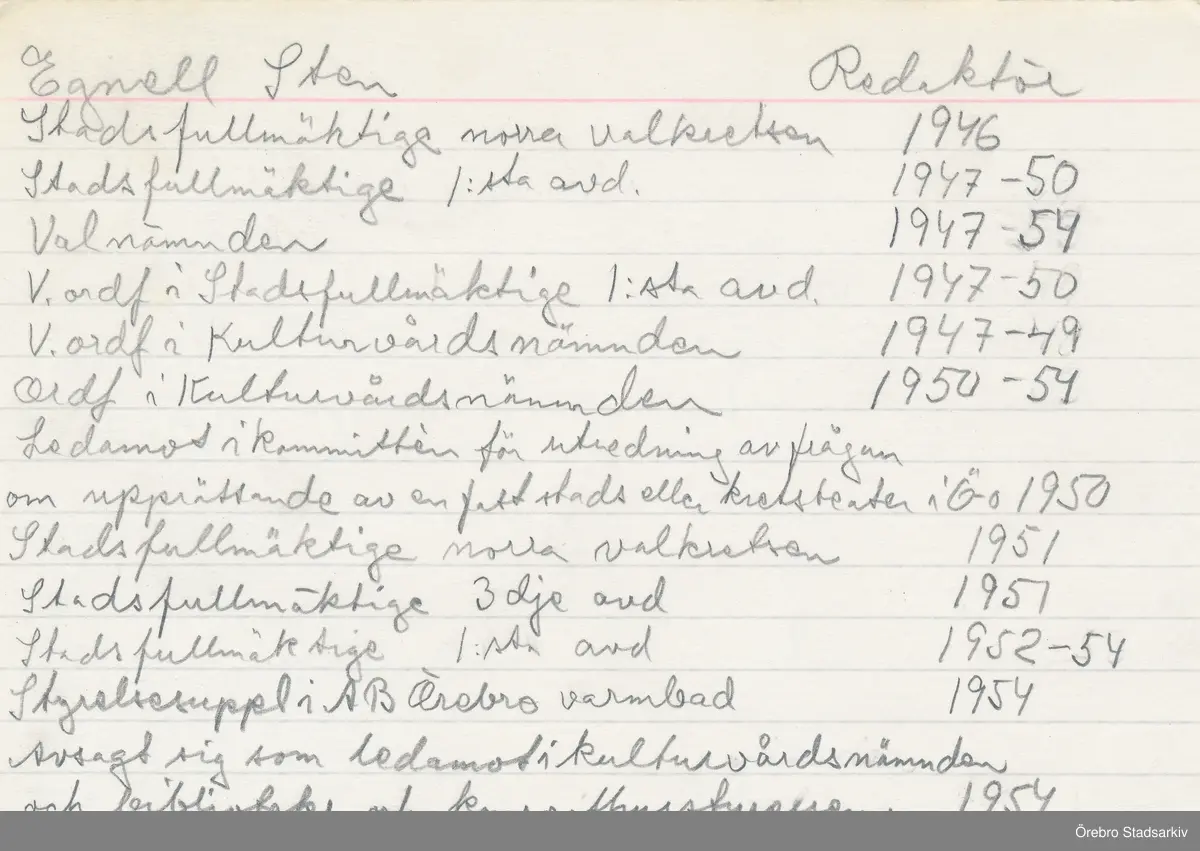 Egnell Sten Redaktör
Stadsfullmäktige norra valkretsen 1946
Stadsfullmäktige 1:sta avd. 1947-50
Valnämnden 1947-54
V. ordf i Stadsfullmäktige 1:sta avd. 1947-50
V. ordf i Kulturvårdsnämnden 1947-49
Ordf i Kulturvårdsnämnden 1950-54
Ledamot i kommittèn för utredning av frågan
om upprättande av en fast stads eller kretsteater i Ö-o 1950
Stadsfullmäktige norra valkretsen 1951
Stadsfullmäktige 3dje avd 1951
Stadsfullmäktige 1:sta avd 1952-54
Styrelsesuppl i AB Örebro varmbad 1954
Avsagt sig som ledamot i kulturvårdsnämnden
och biblioteks och 1954
Örebro Stadsarkiv